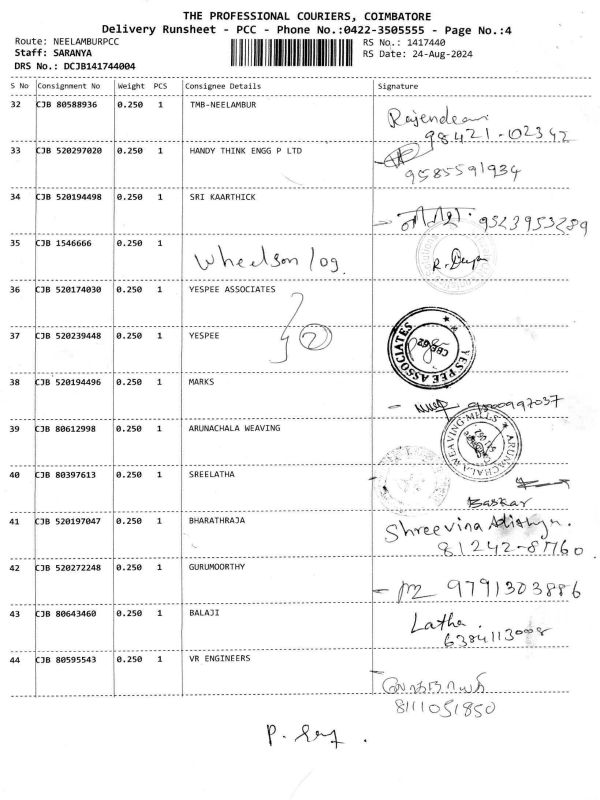 THE PROFESSIONAL COURIERS, COIMBATORE
Delivery Runsheet - PCC - Phone No.:0422-3505555 - Page No.:4
Route: NEELAMBURPCC
RS No.: 1417440
Staff: SARANYA
RS Date: 24-Aug-2024
DRS No.: DCJB141744004
S No Consignment No Weight PCS Consignee Details Signature
32 CJB 80588936 0.250 1 TMB-NEELAMBUR
98421-02342
33 CJB 520297020 0.250 1 HANDY THINK ENGG P LTD
9585591934
34 CJB 520194498 0.250 1 SRI KAARTHICK
9523953289
35 CJB 1546666 0.250 1
Wheelson log.
36 CJB 520174030 0.250 1 YESPEE ASSOCIATES
2
37 CJB 520239448 0.250 1 YESPEE
YES PEE ASSOCIATES
38 CJB 520194496 0.250 1 MARKS
39 CJB 80612998 0.250 1 ARUNACHALA WEAVING
ARUNACHALA WEAVING MILLS
40 CJB 80397613 0.250 1 SREELATHA
Baskar
41 CJB 520197047 0.250 1 BHARATHRAJA
42 CJB 520272248 0.250 1 GURUMOORTHY
9791303886
43 CJB 80643460 0.250 1 BALAJI
Latha.
6384113008
44 CJB 80595543 0.250 1 VR ENGINEERS
8111051850